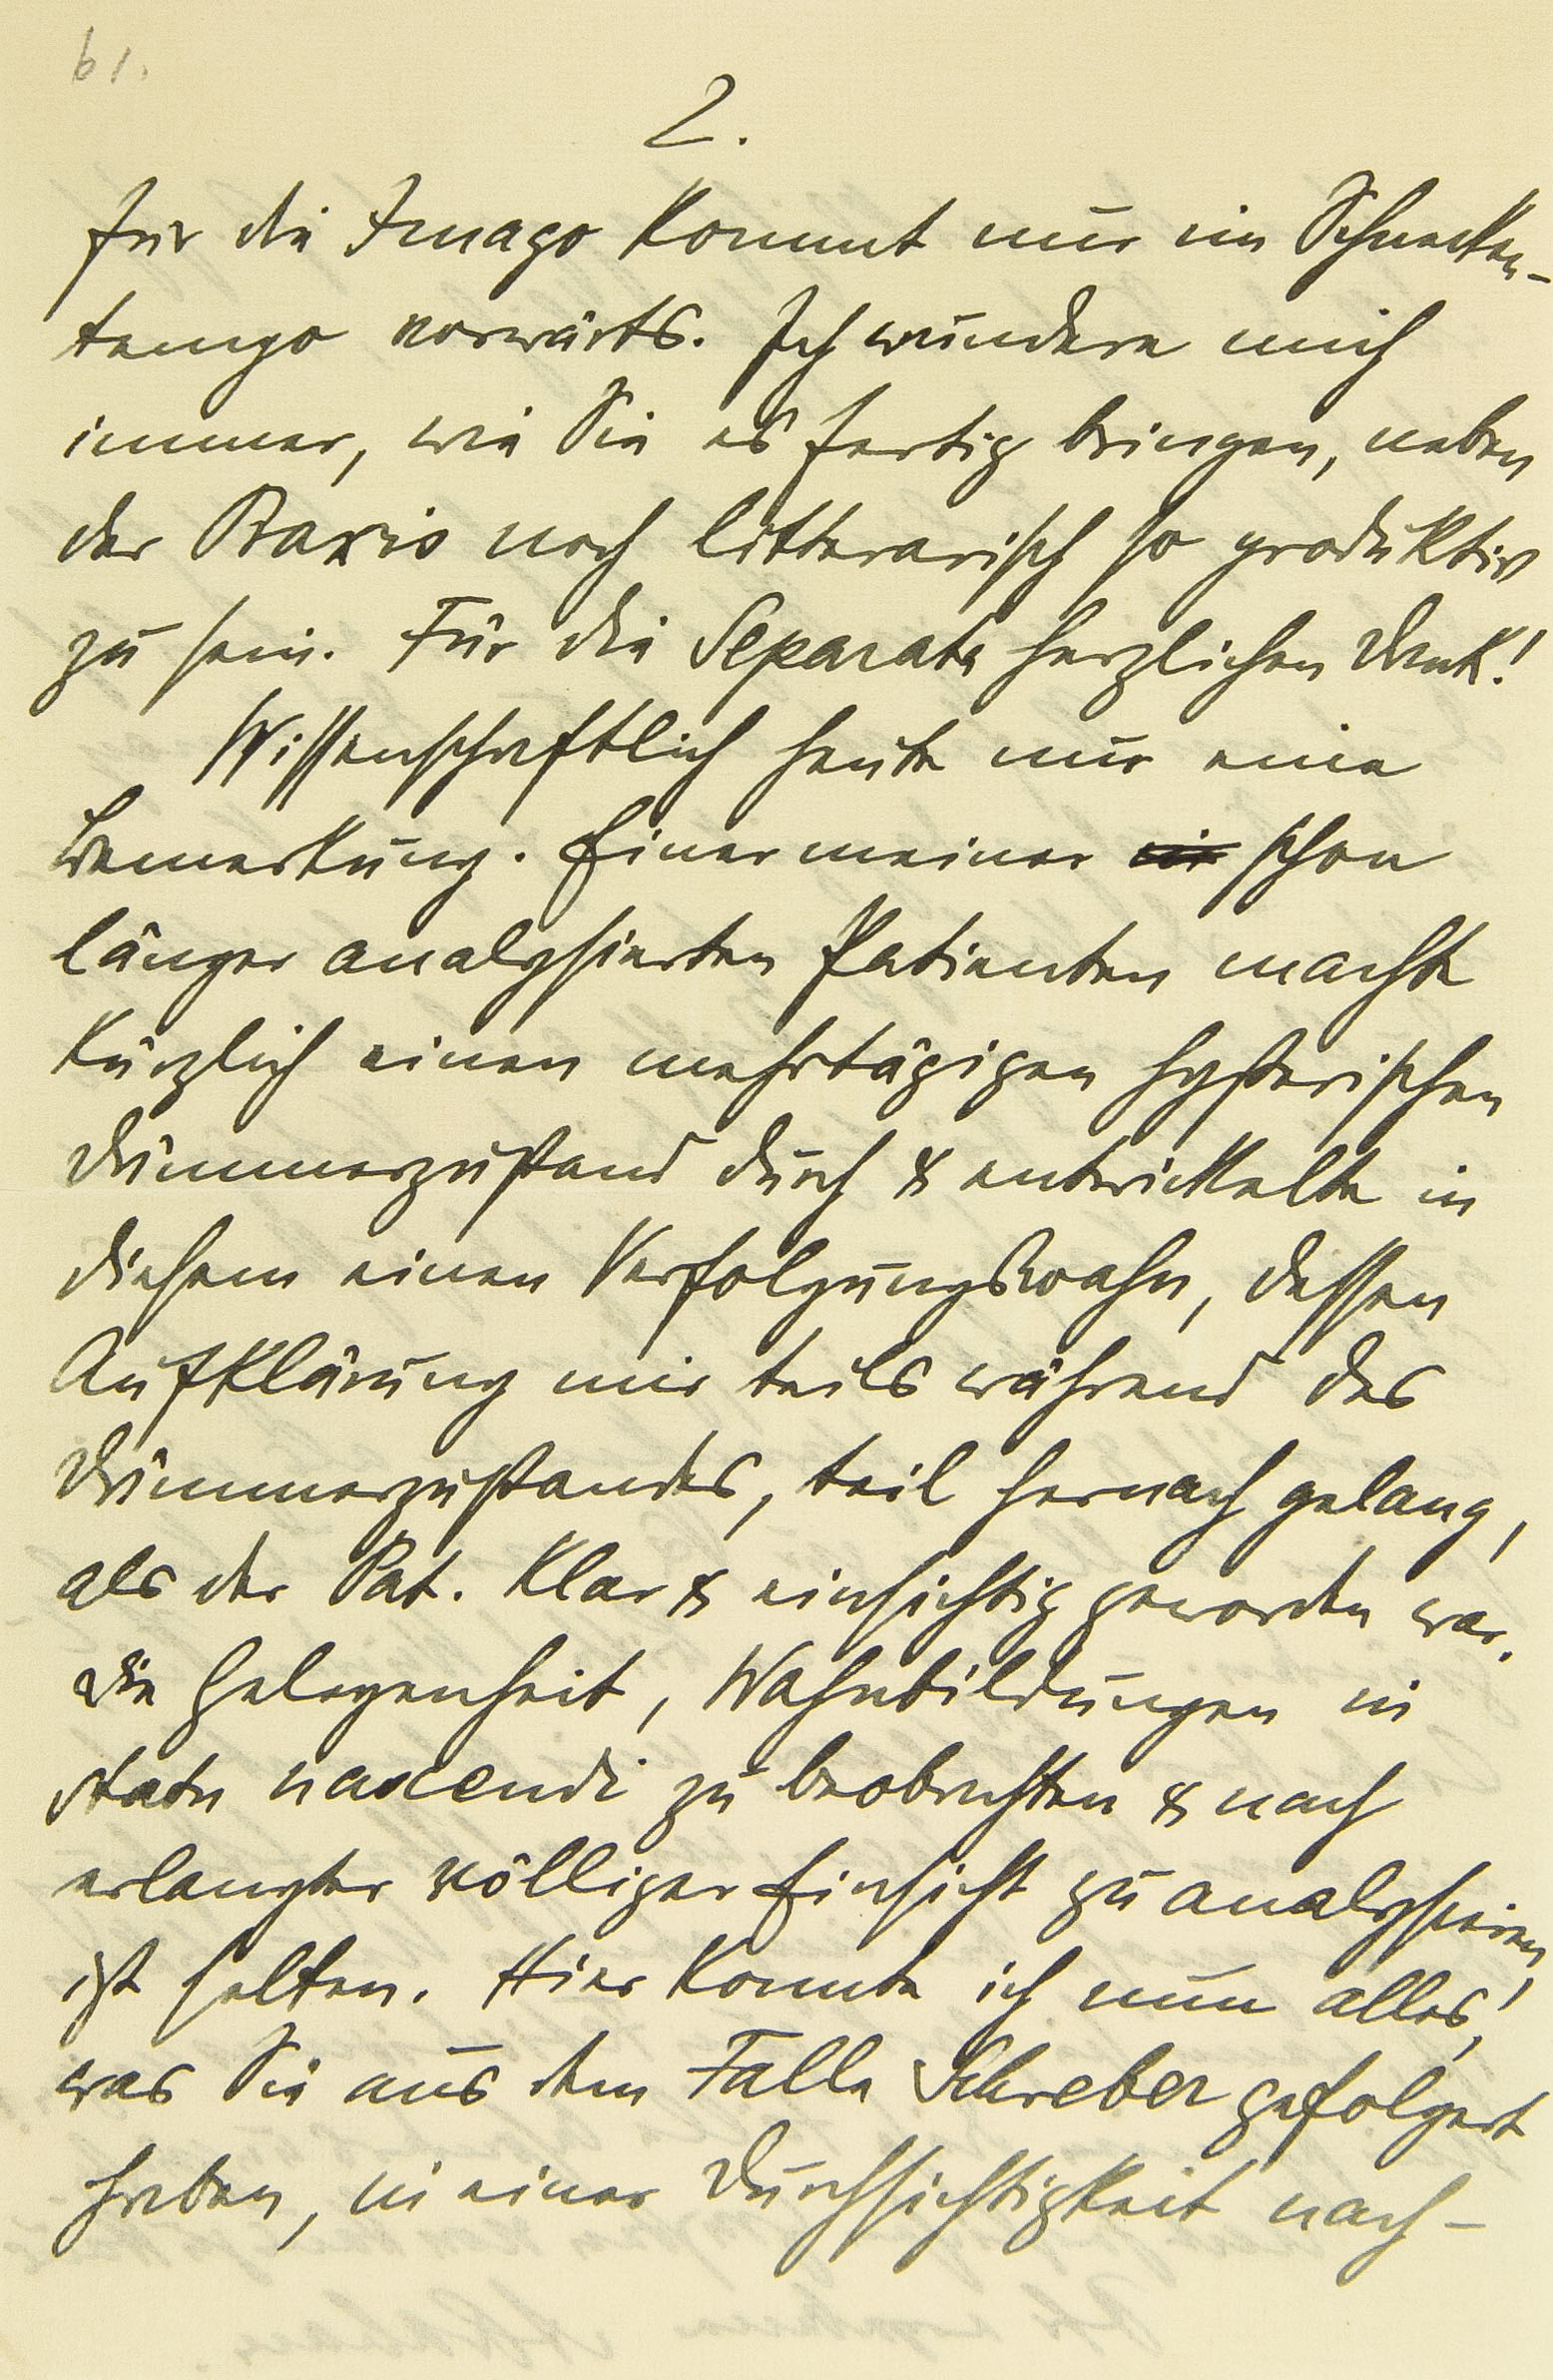 61.
2.
für die Imago kommt nur im Schnecken-
tempo vorwärts. Ich wundere mich
immer, wie Sie es fertig bringen, neben
der Praxis noch litterarisch so produktiv
zu sein. Für die Separata herzlichen Dank!
Wissenschaftlich heute nur eine
Bemerkung. Einer meiner schon
länger analysierten Patienten machte
kürzlich einen mehrtägigen hysterischen
Dämmerzustand durch & entwickelte in
diesem einen Verfolgungswahn, dessen
Aufklärung mir teils während des
Dämmerzustandes, teil hernach gelang,
als der Pat. klar & einsichtig geworden war.
Die Gelegenheit, Wahnbildungen in
statu nascendi zu beobachten & nach
erlangter völliger Einsicht zu analysieren,
ist selten. Hier konnte ich nun alles,
was Sie aus dem Falle Schreber gefolgert
haben, in einer Durchsichtigkeit nach-